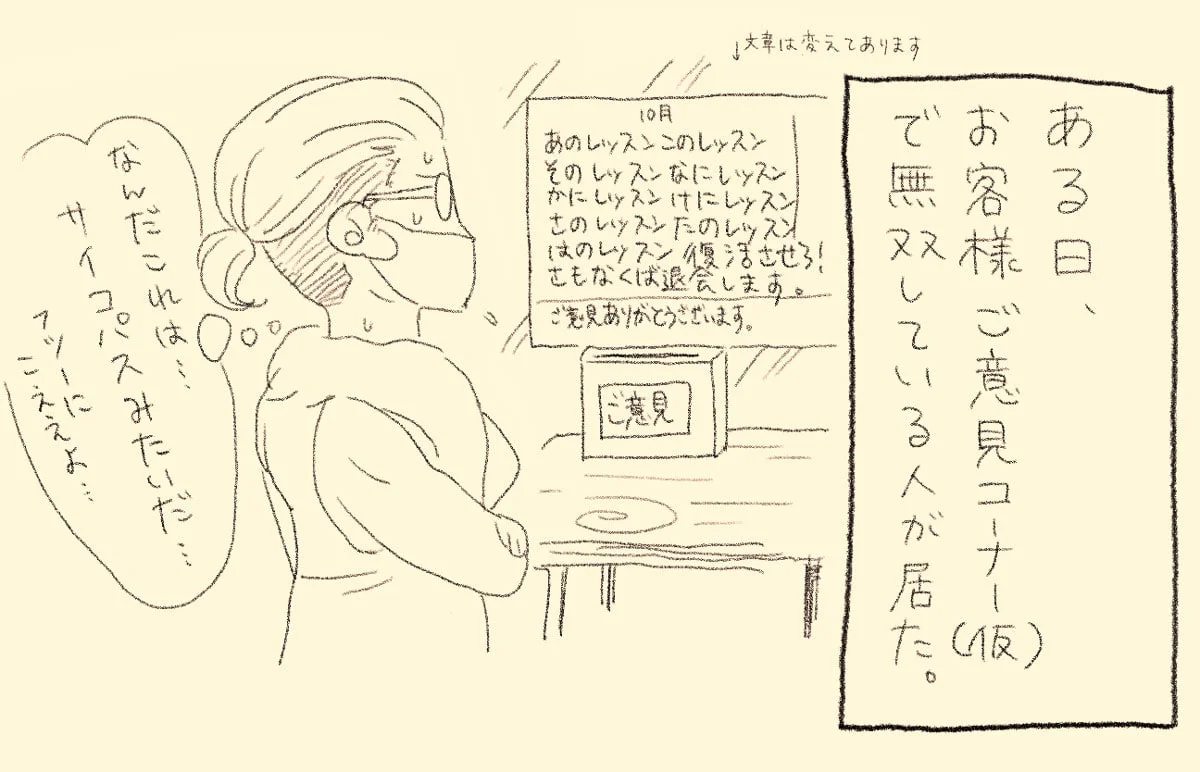 ある日、
お客様ご意見コーナー(仮)
で無双している人が居た。
↓文章は変えてあります
10月
あのレッスンこのレッスン
そのレッスンなにレッスン
かにレッスンけにレッスン
さのレッスンたのレッスン
はのレッスン復活させろ!
さもなくば退会します。
ご意見ありがとうございます。
ご意見
なんだこれは…
サイコパスみたいだ…
フツーに
こええよ…